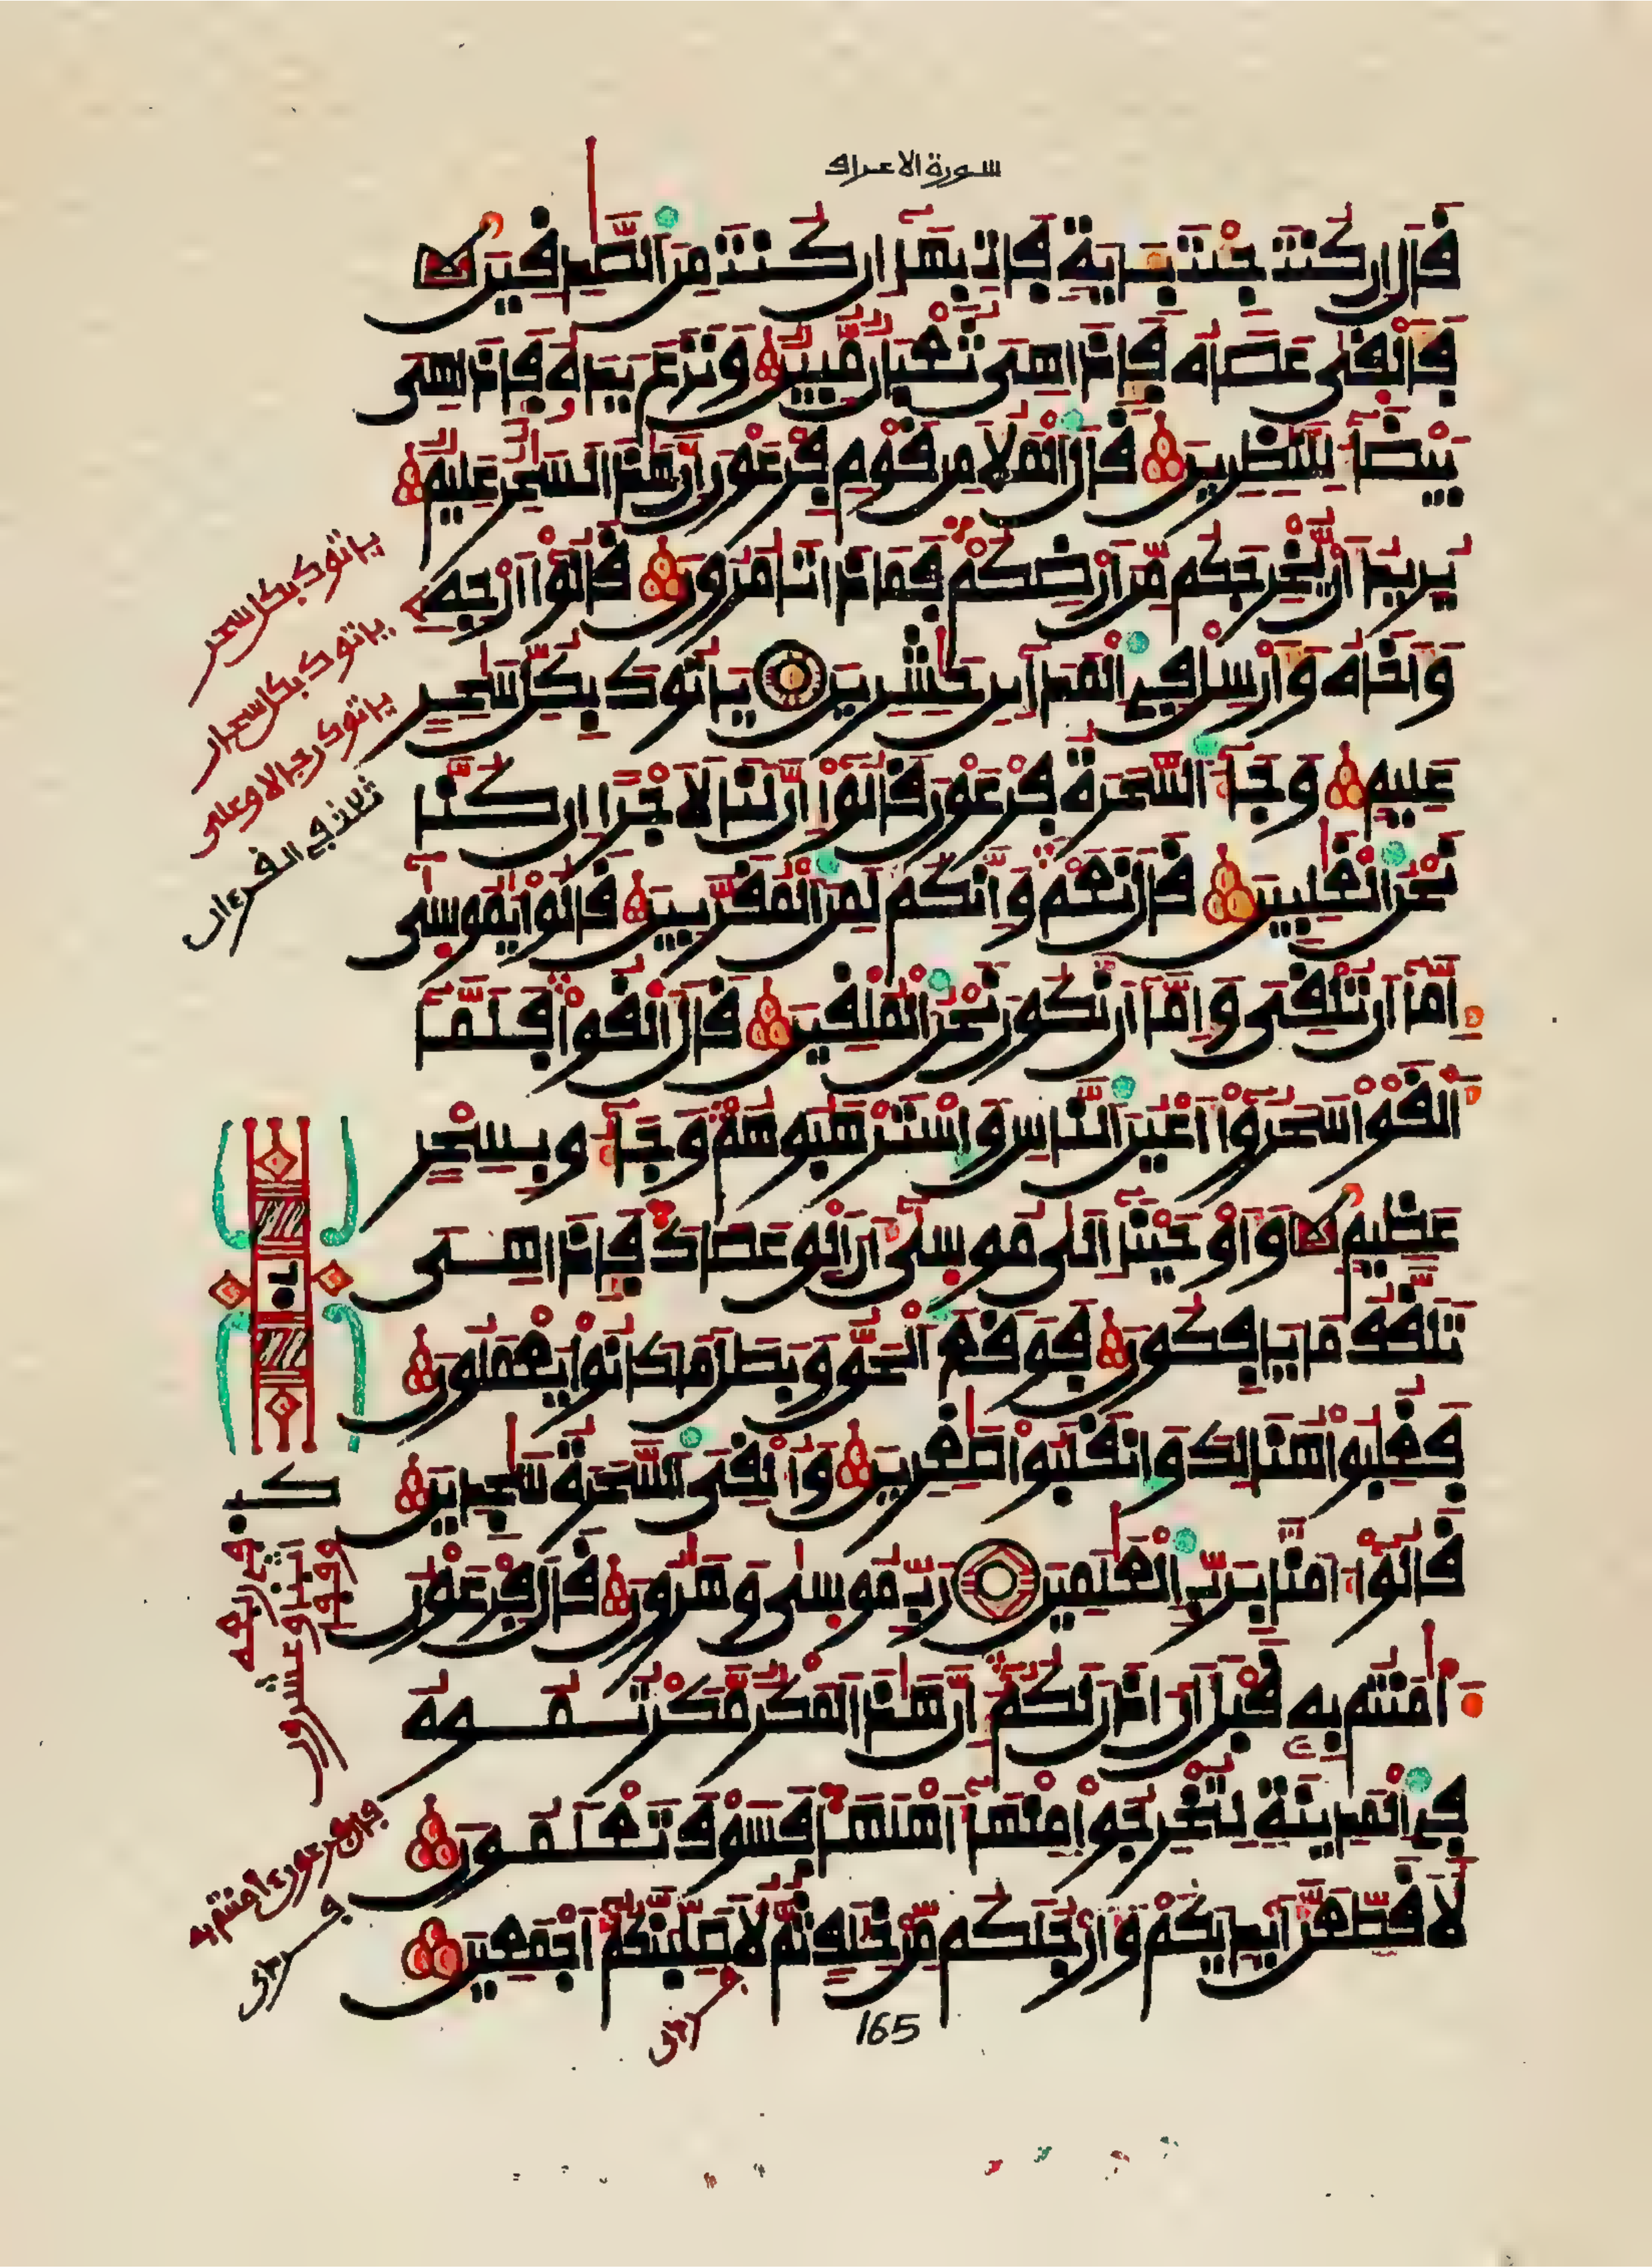 سورة الاعراف
قال ان كنت جئت بـاية فات بها ان كنت من الصدقين
فالقى عصاه فاذا هى ثعبان مبين ونزع يده فاذا هى
بيضا للنظرين قال الملا من قوم فرعون ان هذا لسحر عليم
يريد ان يخرجكم من ارضكم فماذا تامرون قالوا ارجه
واخاه وارسل في المداين حشرين ياتوك بكل سحر
عليم وجا السحرة فرعون قالوا ان لنا لاجرا ان كنا
نحن الغلبين قال نعم وانكم لمن المقربين قالوا يموسى
اما ان تلقى واما ان نكون نحن الملقين قال القوا فلما
القوا سحروا اعين الناس واسترهبوهم وجاو بسحر
عظيم واوحينا الى موسى ان الق عصاك فاذا هى
تلقف ما يافكون فوقع الحق وبطل ما كانوا يعملون
فغلبوا هنالك وانقلبوا صغرين والقى السحرة سجدين
قالوا امنا برب العلمين رب موسى وهرون قال فرعون
امنتم به قبل ان اذن لكم ان هذا لمكر مكرتموه
في المدينة لتخرجوا منها اهلها فسوف تعلمون
لاقطعن ايديكم وارجلكم من خلف ثم لاصلبنكم اجمعين
ياتوك بكل سحر
ياتوك بكل سحار
ياتوك رجالا وعلى
ثلاث في القرءان
165